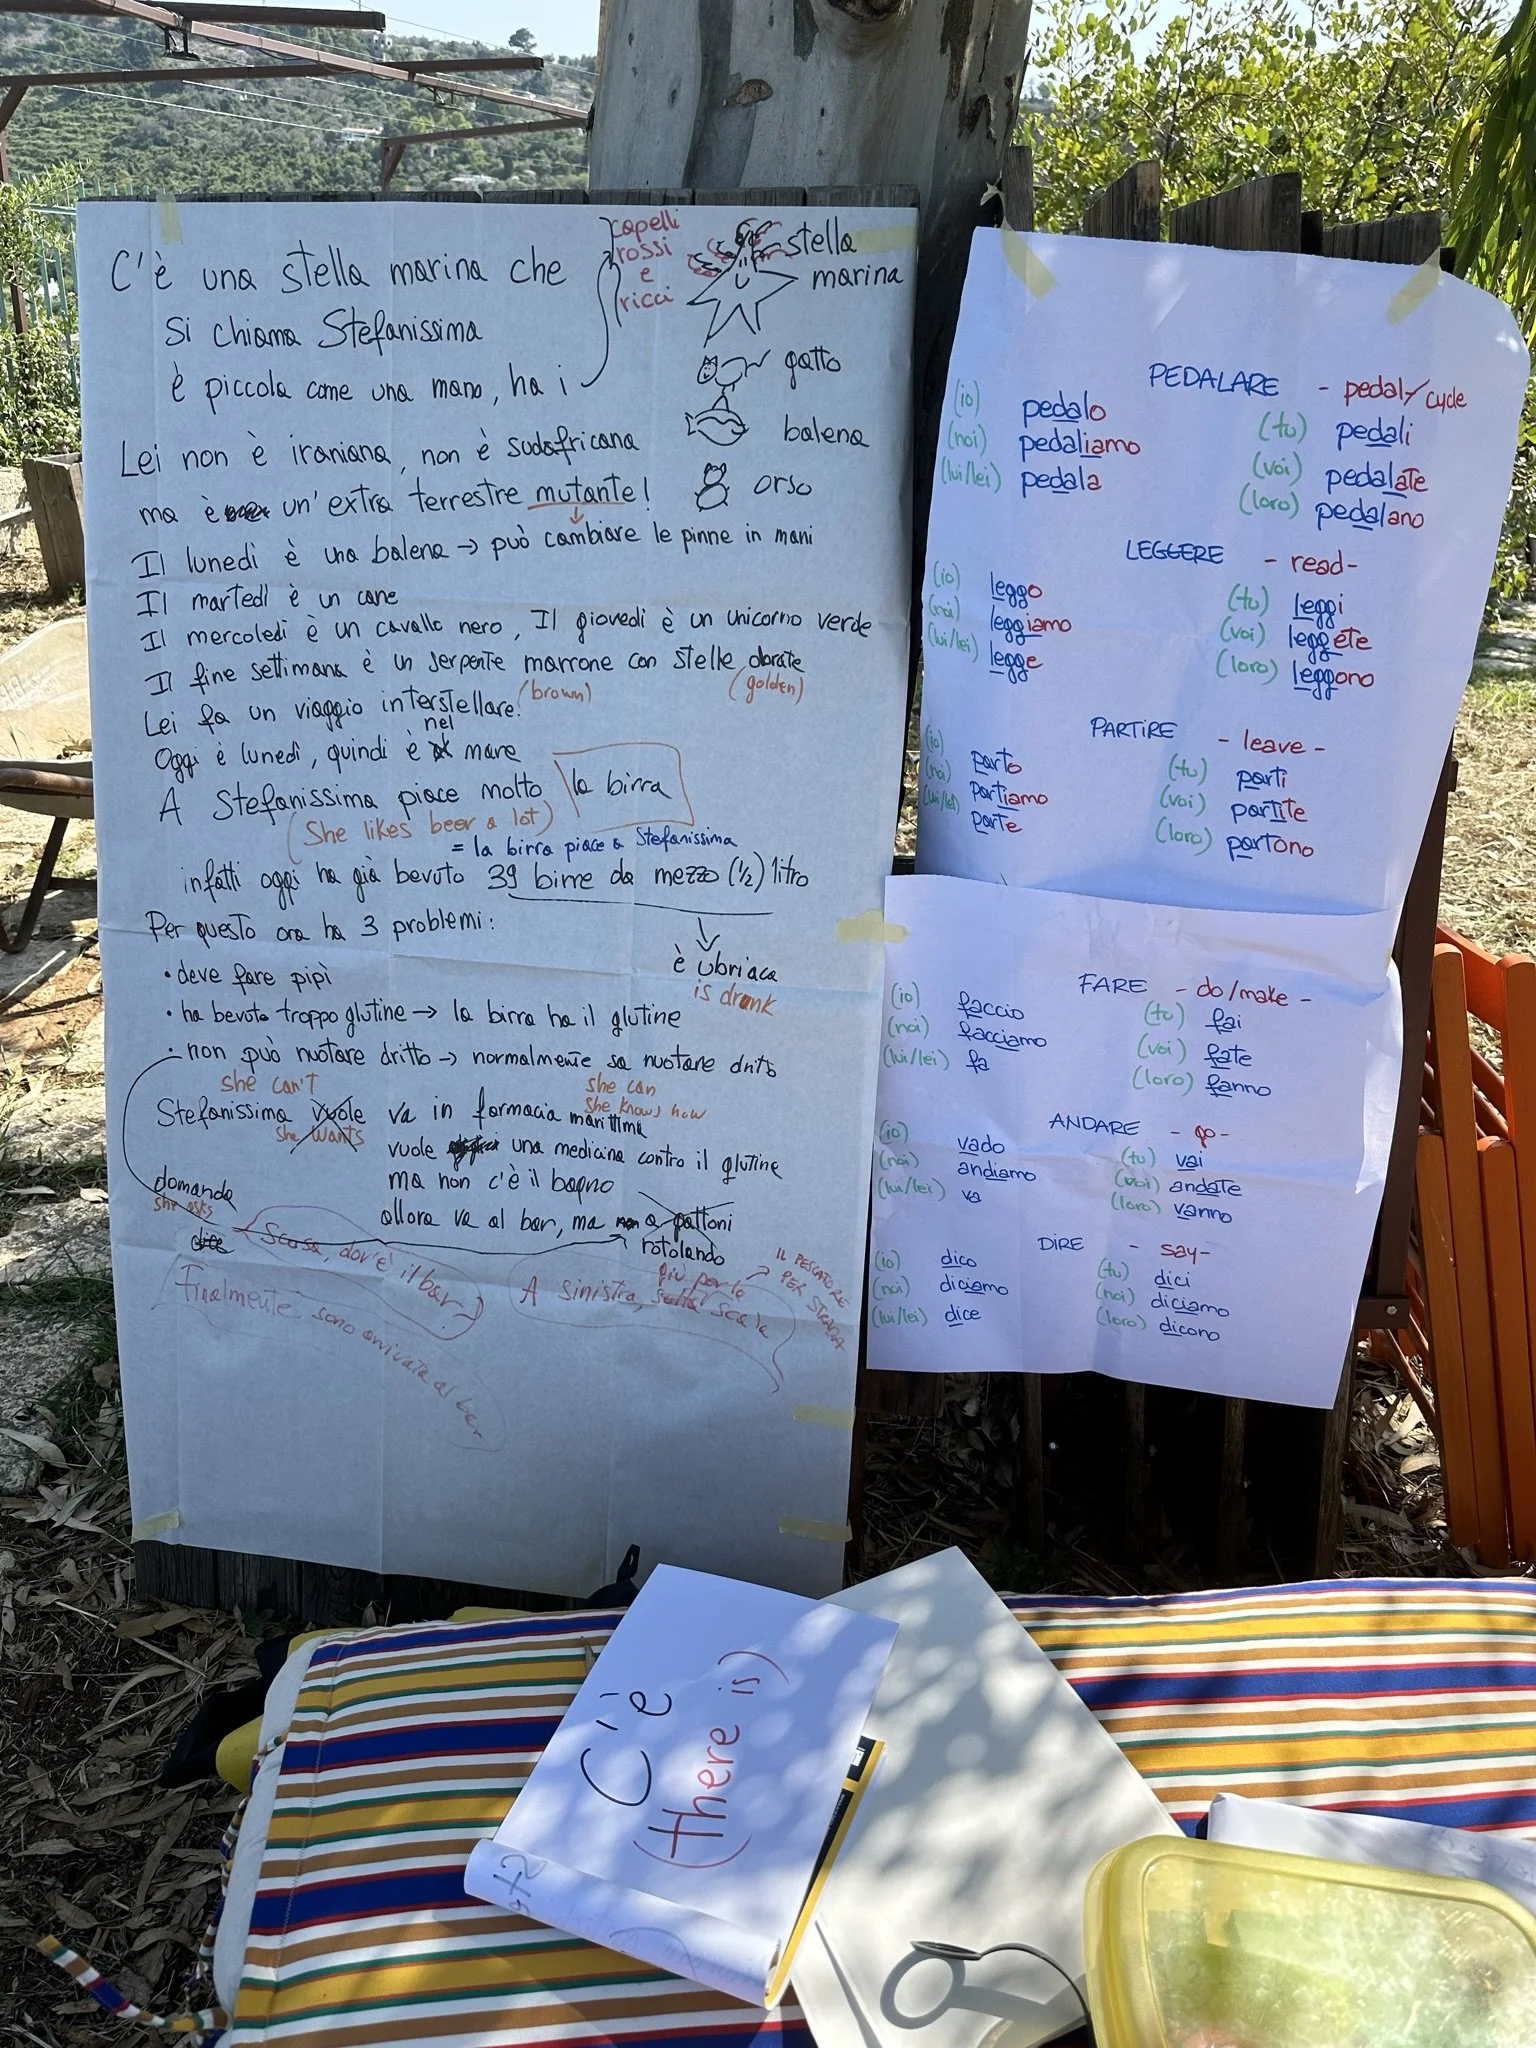 C'è una stella marina che
si chiama Stefanissima
è piccola come una mano, ha i
capelli
rossi
e
ricci
stella
marina
gatto
balena
orso
Lei non è iraniana, non è sudafricana
ma è un'extra terrestre mutante!
Il lunedì è una balena → può cambiare le pinne in mani
Il martedì è un cane
Il mercoledì è un cavallo nero, Il giovedì è un unicorno verde
Il fine settimana è un serpente marrone con stelle dorate
(brown)
(golden)
Lei fa un viaggio interstellare!
Oggi è lunedì, quindi è nel mare
A Stefanissima piace molto la birra
(She likes beer a lot)
= la birra piace a Stefanissima
infatti oggi ha già bevuto 39 birre da mezzo (1/2) litro
è ubriaca
is drunk
Per questo ora ha 3 problemi:
• deve fare pipì
• ha bevuto troppo glutine → la birra ha il glutine
• non può nuotare dritto → normalmente sa nuotare dritto
she can't
she can
she knows how
Stefanissima vuole va in farmacia marittima
she wants
vuole una medicina contro il glutine
ma non c'è il bagno
allora va al bar, ma a gattoni
rotolando
domanda
she asks
dice
Scusa, dov'è il bar?
A sinistra, giù per la scala
IL PESCATORE
PER STRADA
Finalmente sono arrivata al bar
PEDALARE - pedal/cycle
(io) pedalo (tu) pedali
(noi) pedaliamo (voi) pedalate
(lui/lei) pedala (loro) pedalano
LEGGERE - read-
(io) leggo (tu) leggi
(noi) leggiamo (voi) leggete
(lui/lei) legge (loro) leggono
PARTIRE - leave -
(io) parto (tu) parti
(noi) partiamo (voi) partite
(lui/lei) parte (loro) partono
FARE - do/make -
(io) faccio (tu) fai
(noi) facciamo (voi) fate
(lui/lei) fa (loro) fanno
ANDARE - go -
(io) vado (tu) vai
(noi) andiamo (voi) andate
(lui/lei) va (loro) vanno
DIRE - say-
(io) dico (tu) dici
(noi) diciamo (noi) diciamo
(lui/lei) dice (loro) dicono
C'è
(there is)